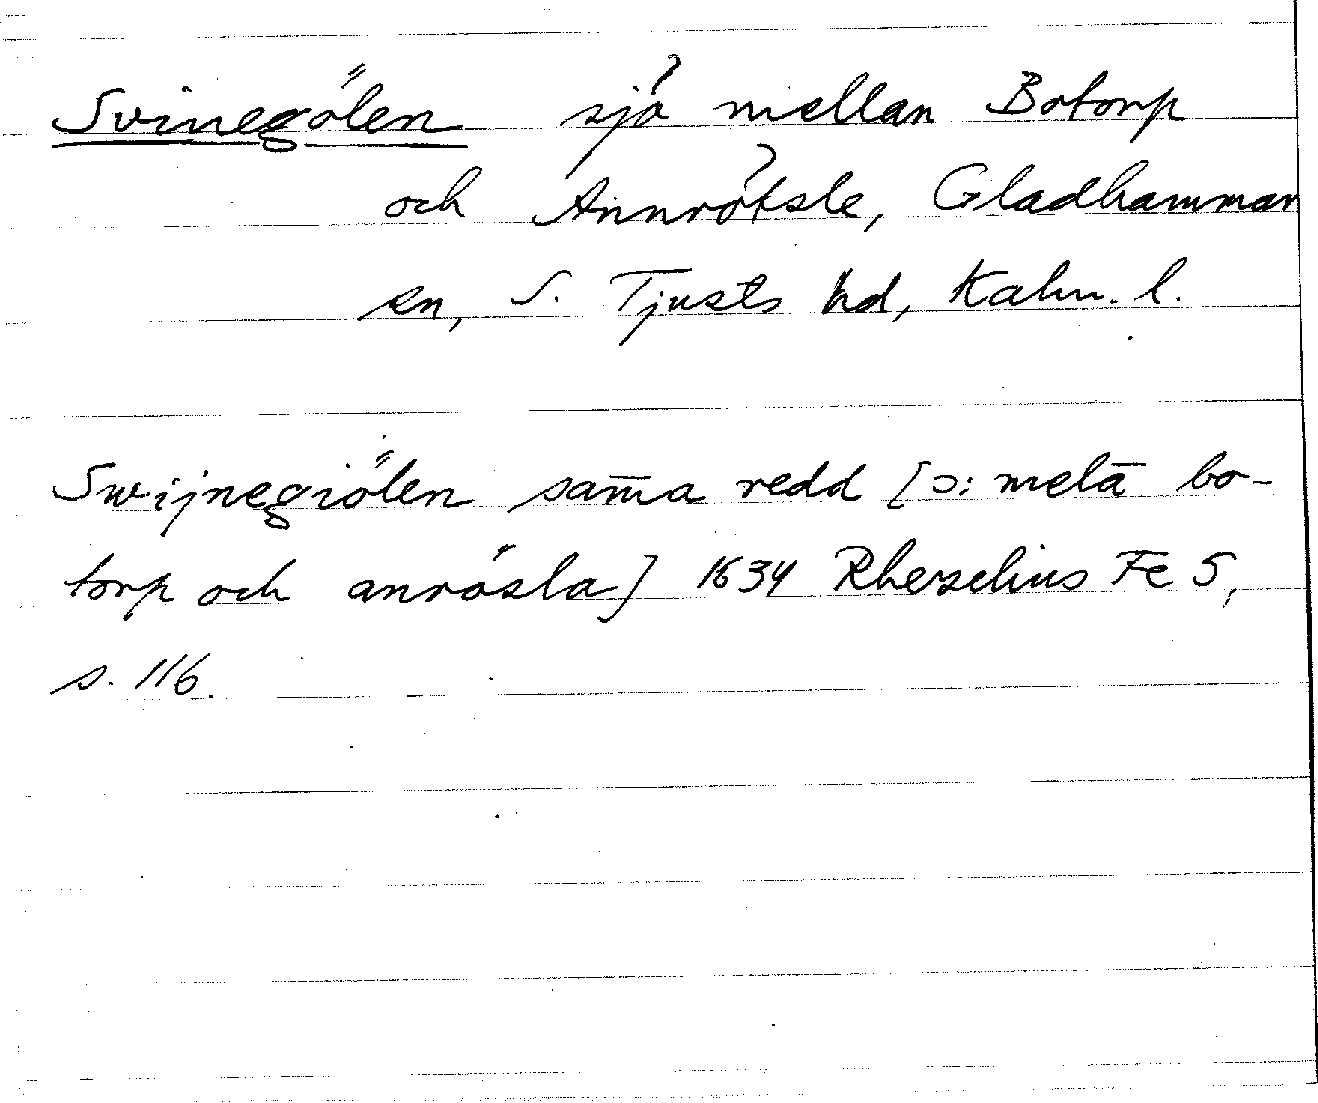 Svinegölen sjö mellan Botorp
och Annrötsle, Gladhammar
sn, S. Tjusts hd, Kalm. l.
Swijnegiölen sam̄a redd [ɔ: melā bo-
torp och anrösla] 1634 Rhezelius Fe 5,
s. 116.